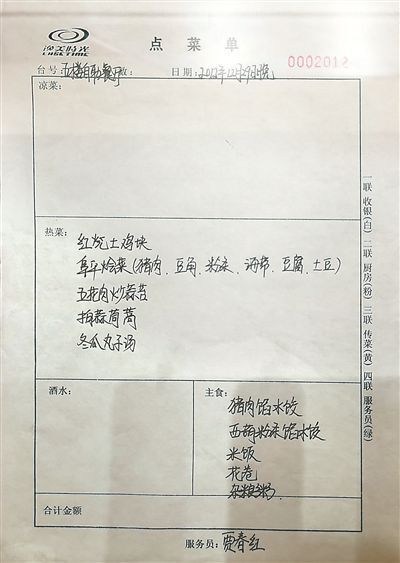 逸美时光
点菜单
台号 五楼自助餐厅 数: 日期: 2012年12月29日晚 0002012
凉菜:
热菜:
红烧土鸡块
阜平烩菜(猪肉、豆角、粉条、海带、豆腐、土豆)
五花肉炒蒜苔
拍蒜茼蒿
冬瓜丸子汤
酒水:
主食:
猪肉馅水饺
西葫粉条馅水饺
米饭
花卷
杂粮粥
合计金额
服务员: 贾春红
一联 收银(白) 二联 厨房(粉) 三联 传菜(黄) 四联 服务员(绿)